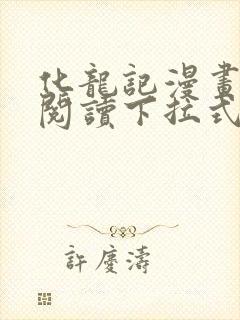 化龍記漫畫
閱讀下拉式
許慶濤